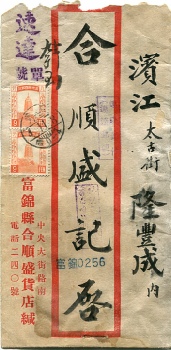 濱江太古街隆豐成內
合順盛記啓
速達
單號
富錦縣合順盛貨店緘
中央大街路南
電話二四〇號
富錦0256